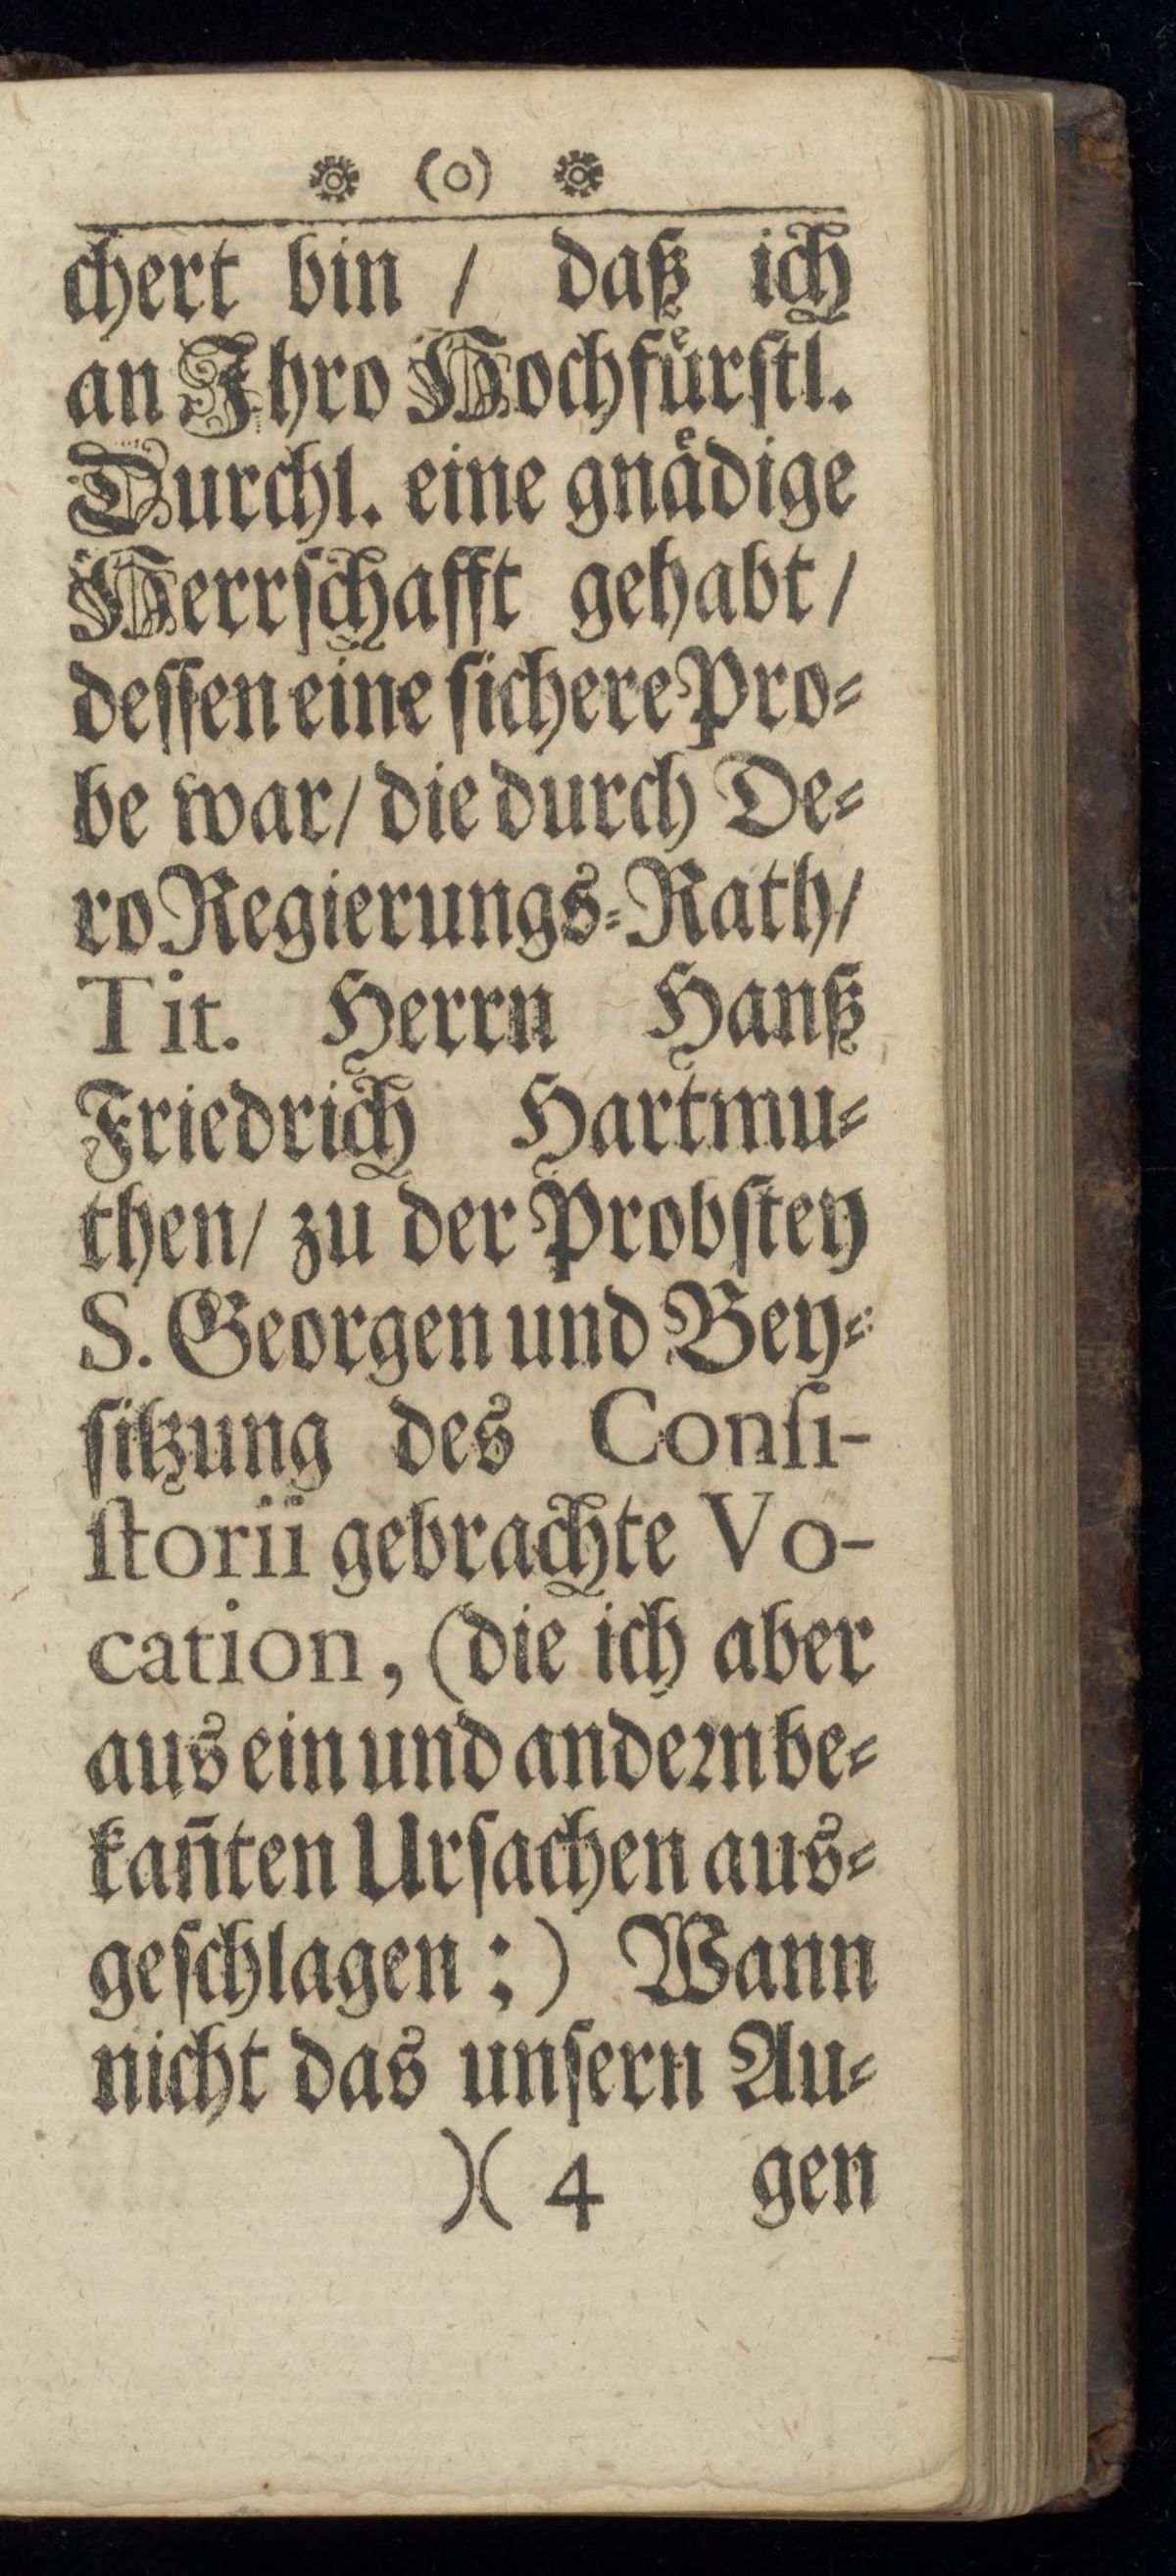 ❁ (o) ❁
chert bin / daß ich
an Ihro Hochfuͤrſtl.
Durchl. eine gnaͤdige
Herrſchafft gehabt /
deſſen eine ſichere Pro⸗
be war / die durch De⸗
ro Regierungs⸗Rath /
Tit. Herrn Hanß
Friedrich Hartmu⸗
then / zu der Probſtey
S. Georgen und Bey⸗
ſitzung des Conſi-
ſtorii gebrachte Vo-
cation, (die ich aber
aus ein und andeꝛn be⸗
kan̄ten Urſachen aus⸗
geſchlagen ;) Wann
nicht das unſern Au⸗
)( 4 gen